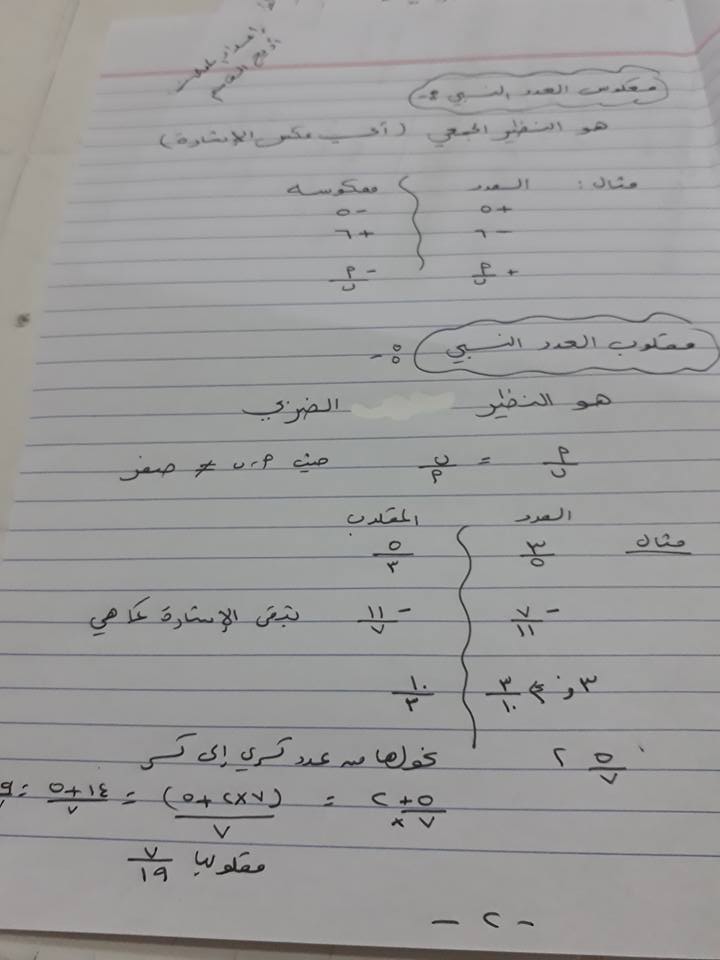 معكوس العدد النسبي :-
هو النظير الجمعي (أي عكس الإشارة)
مثال : العدد معكوسه
+٥ -٥
-٦ +٦
+ م/ن - م/ن
مقلوب العدد النسبي :-
هو النظير الضربي
م/ن = ن/م حيث م، ن ≠ صفر
العدد المقلوب
مثال ٣/٥ ٥/٣
- ٧/١١ - ١١/٧ تبقى الإشارة كما هي
٣و٠ ٣/١٠ ١٠/٣
٢ ٥/٧ نحولها من عدد كسري إلى كسر
٢ + ٥ × ٧ = (٧×٢+٥)/٧ = ١٤+٥/٧ =
مقلوبها ٧/١٩
- ٢ -